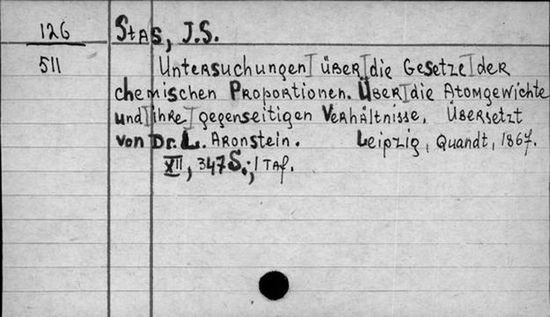 126 Stas, J.S.
511 Untersuchungen über die Gesetze der
chemischen Proportionen. Über die Atomgewichte
und ihre gegenseitigen Verhältnisse. Übersetzt
von Dr. L. Aronstein. Leipzig, Quandt, 1867.
XII, 347 S.; 1 Taf.